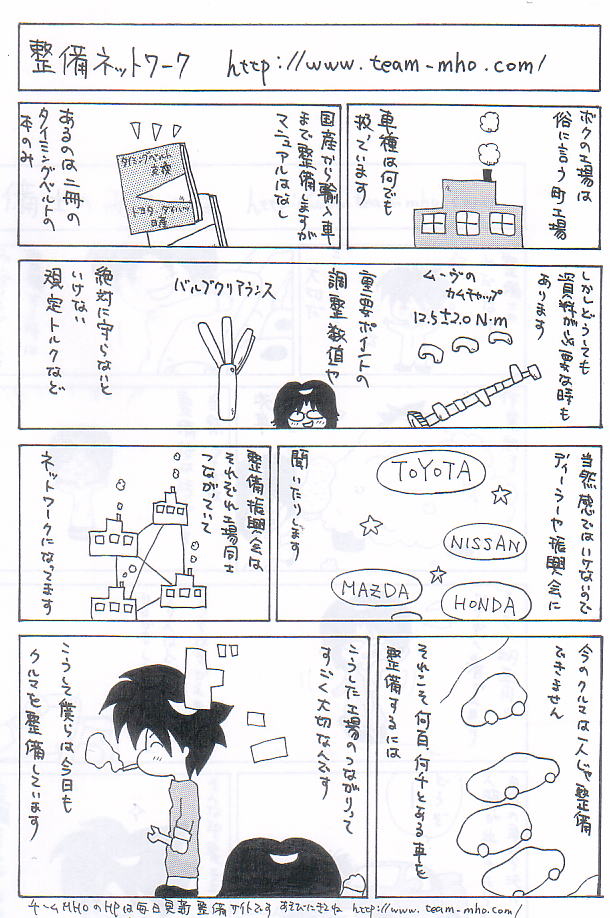 整備ネットワーク http://www.team-mho.com/
ボクの工場は
俗に言う町工場
車種は何でも
扱っています
国産から輸入車
まで整備しますが
マニュアルはなし
タイミングベルト
交換
トヨタ・ダイハツ
日産
あるのは二冊の
タイミングベルトの
本のみ
しかしどうしても
資料が必要な時も
あります
ムーヴの
カムキャップ
12.5±2.0 N・m
重要ポイントの
調整数値や
バルブクリアランス
絶対に守らないと
いけない
規定トルクなど
当然感ではいけないので
ディーラーや振興会に
TOYOTA
NISSAN
MAZDA
HONDA
聞いたりします
整備振興会は
それぞれ工場同士
つながっていて
ネットワークになってます
今のクルマは一人じゃ整備
できません
それこそ何百、何千とある車を
整備するには
こうした工場のつながりって
すごく大切なんです
こうして僕らは今日も
クルマを整備しています
チームMHOのHPは毎日更新 整備サイトです あそびにきてね http://www.team-mho.com/